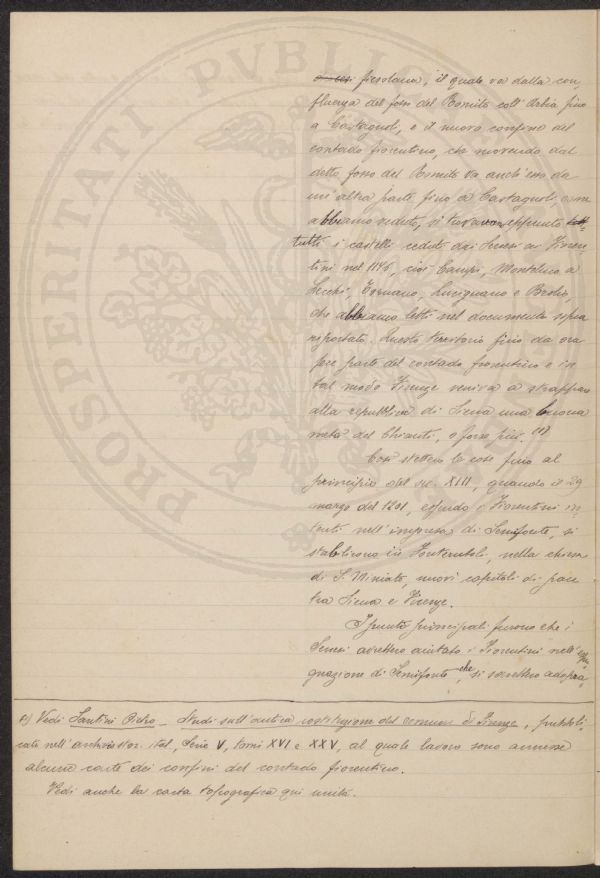 fiesolana, il quale va dalla con-
fluenza del fosso del Bomito coll'Arbia fino
a Castagnoli, e il nuovo confine del
contado fiorentino, che movendo dal
detto fosso del Bomito va anch'esso da
un'altra parte fino a Castagnoli, come
abbiamo veduto, si trovavano appunto
tutti i castelli ceduti dai Senesi ai Fioren-
tini nel 1176, cioè Campi, Monteluco a
Lecchi, Tornano, Lucignano e Brolio,
che abbiamo letti nel documento sopra
riportato. Questo territorio fino da ora
fece parte del contado fiorentino e in
tal modo Firenze veniva a strappare
alla repubblica di Siena una buona
metà del Chianti, o forse più. (1)
Così stettero le cose fino al
principio del sec. XIII, quando il 29
marzo del 1201, essendo i Fiorentini in-
tenti nell'impresa di Semifonte, si
stabilirono in Fonterutoli, nella chiesa
di S. Miniato, nuovi capitoli di pace
tra Siena e Firenze.
I punti principali furono che i
Senesi avrebbero aiutato i Fiorentini nell'espu-
gnazione di Semifonte, che si sarebbero adopra-
(1) Vedi Santini Pietro - Studi sull'antica costituzione del comune di Firenze, pubbli-
cati nell'archivio stor. ital., Serie V, tomi XVI e XXV, al quale lavoro sono annesse
alcune carte dei confini del contado fiorentino.
Vedi anche la carta topografica qui unita.
PROSPERITATI PVBLICAE